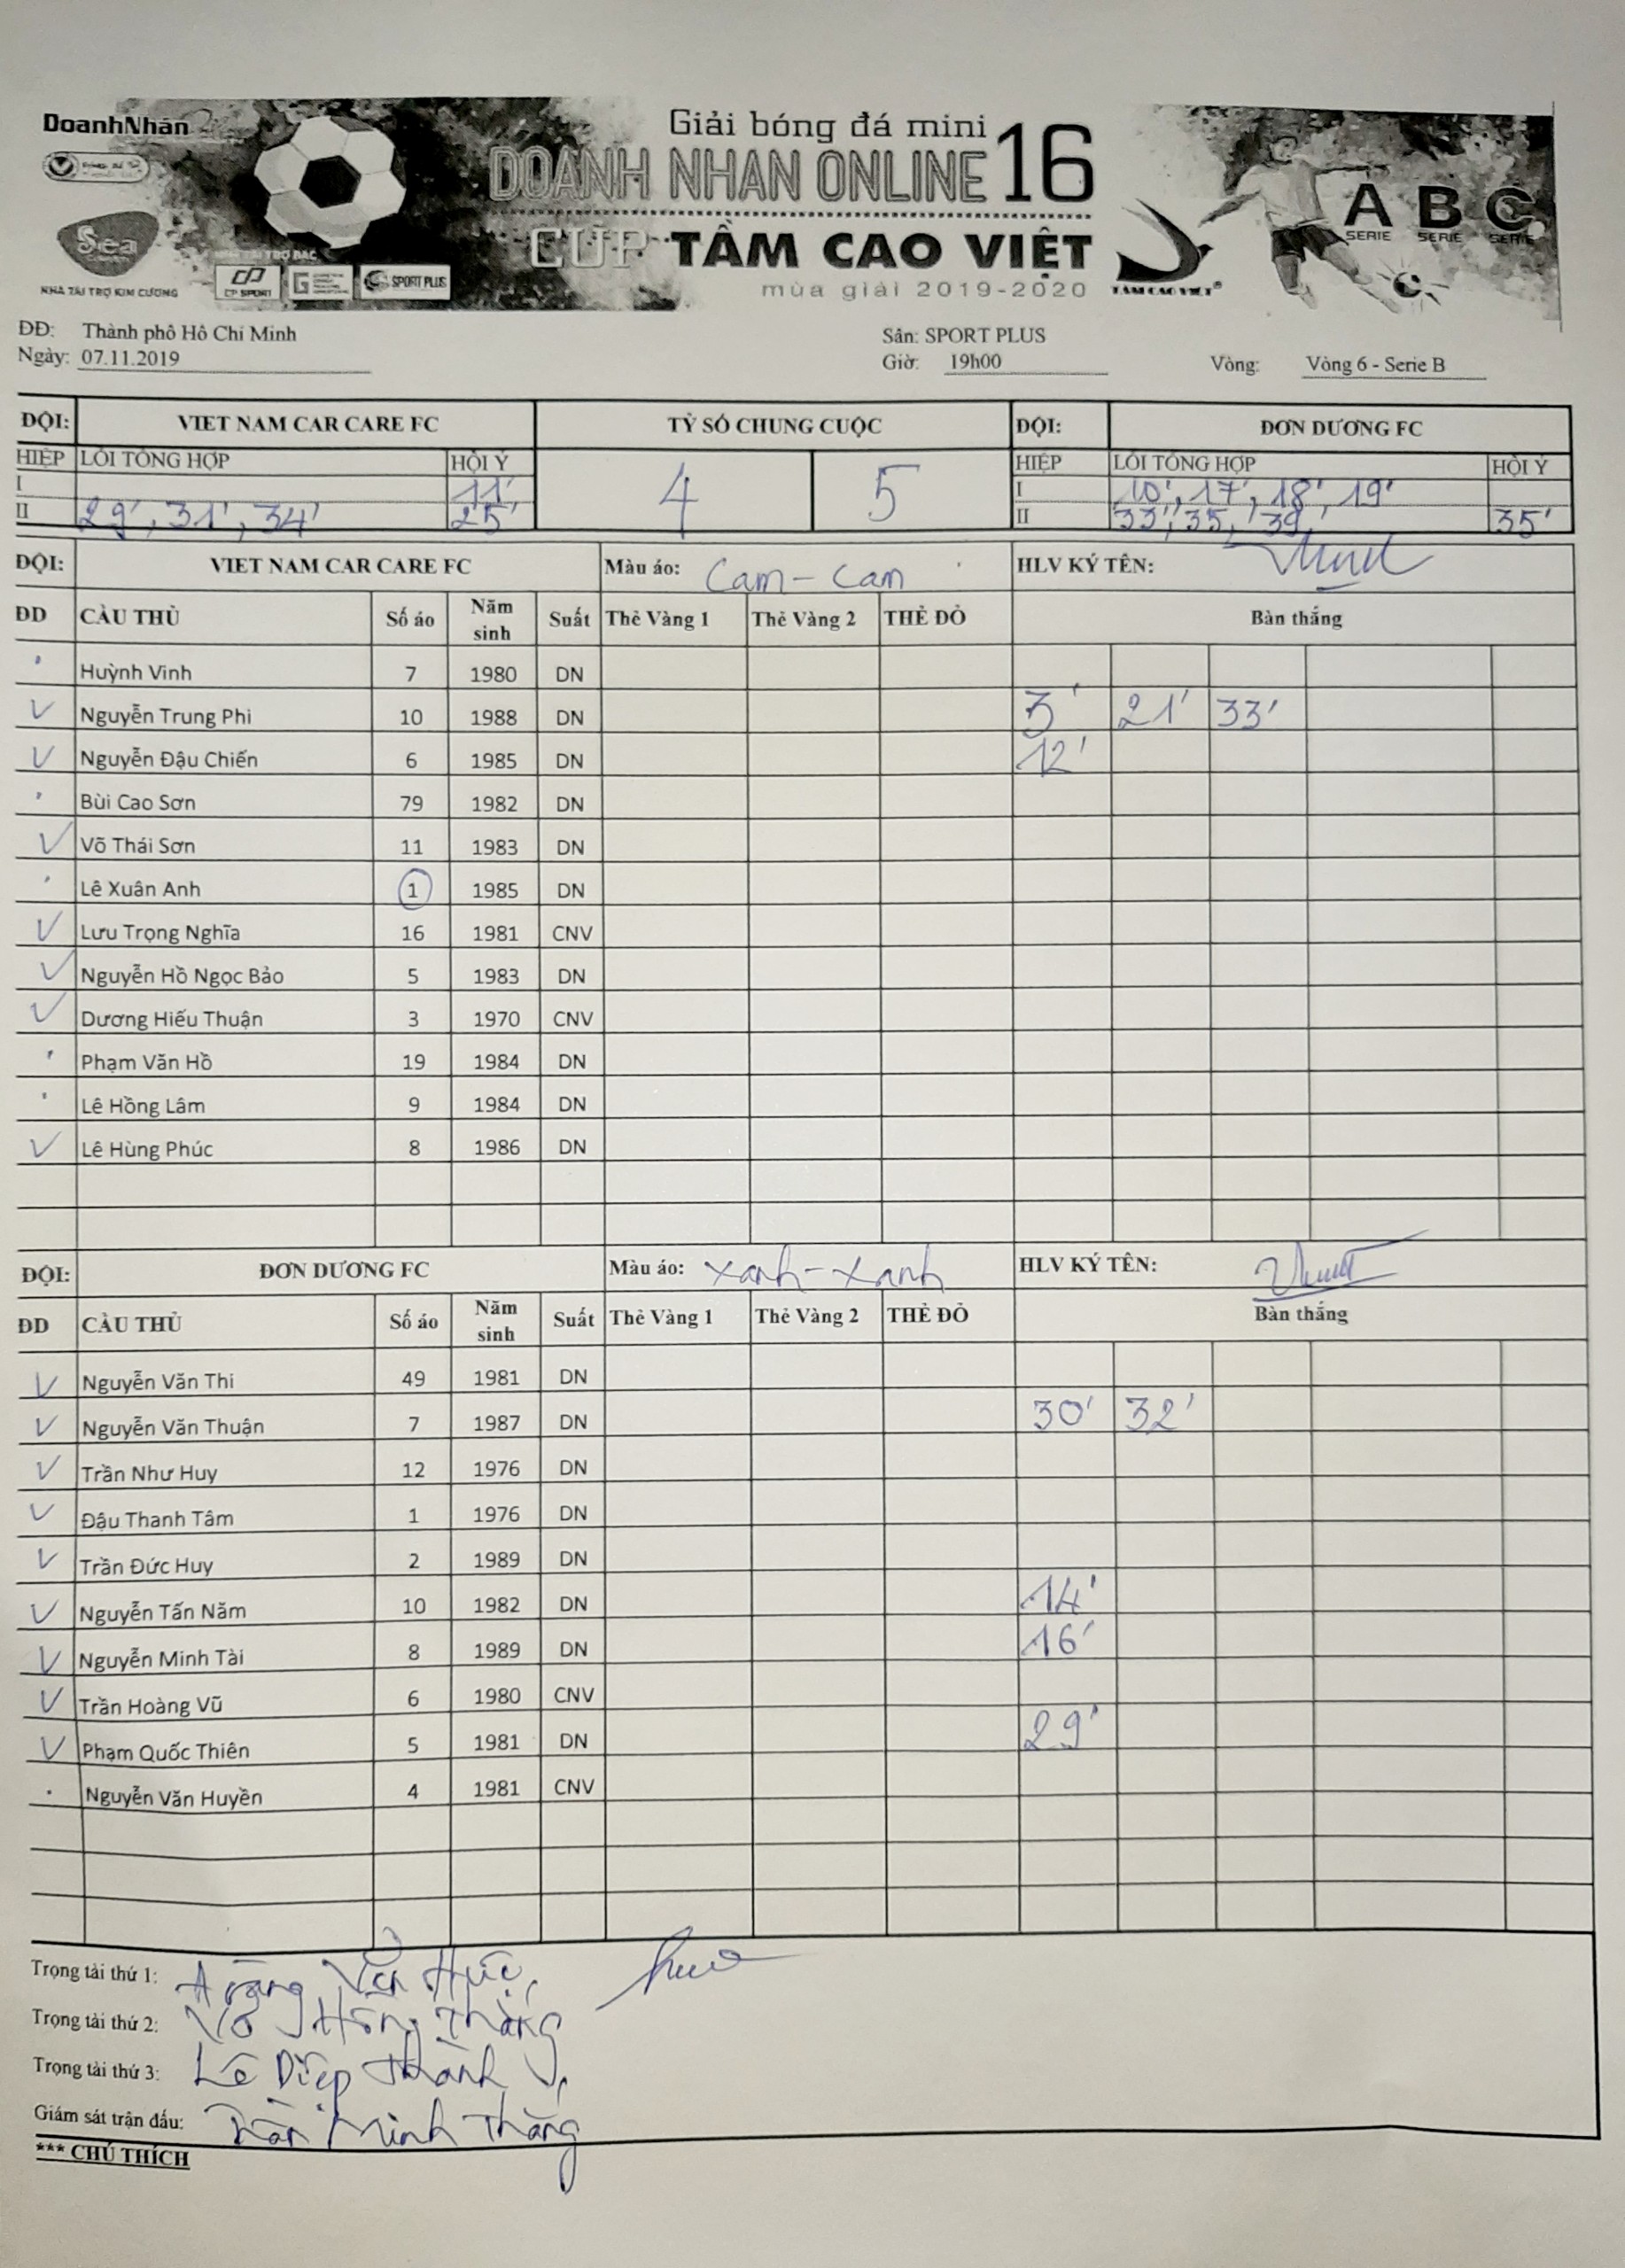 DoanhNhân
Giải bóng đá mini
DOANH NHAN ONLINE 16
CUP TẦM CAO VIỆT
mùa giải 2019-2020
TẦM CAO VIỆT
A B C
SERIE SERIE SERIE
Sea
NHÀ TÀI TRỢ KIM CƯƠNG
CP SPORT
SPORT PLUS
ĐĐ: Thành phố Hồ Chí Minh Sân: SPORT PLUS
Ngày: 07.11.2019 Giờ: 19h00 Vòng: Vòng 6 - Serie B
ĐỘI: VIET NAM CAR CARE FC TỶ SỐ CHUNG CUỘC ĐỘI: ĐƠN DƯƠNG FC
HIỆP LỖI TỔNG HỢP HỘI Ý 4 5 HIỆP LỖI TỔNG HỢP HỘI Ý
I 11' I 10', 17', 18', 19'
II 29', 31', 34' 25' II 33', 35, 39' 35'
ĐỘI: VIET NAM CAR CARE FC Màu áo: Cam - Cam HLV KÝ TÊN:
ĐD CẦU THỦ Số áo Năm sinh Suất Thẻ Vàng 1 Thẻ Vàng 2 THẺ ĐỎ Bàn thắng
Huỳnh Vinh 7 1980 DN
Nguyễn Trung Phi 10 1988 DN 3' 21' 33'
Nguyễn Đậu Chiến 6 1985 DN 12'
Bùi Cao Sơn 79 1982 DN
Võ Thái Sơn 11 1983 DN
Lê Xuân Anh 1 1985 DN
Lưu Trọng Nghĩa 16 1981 CNV
Nguyễn Hồ Ngọc Bảo 5 1983 DN
Dương Hiếu Thuận 3 1970 CNV
Phạm Văn Hồ 19 1984 DN
Lê Hồng Lâm 9 1984 DN
Lê Hùng Phúc 8 1986 DN
ĐỘI: ĐƠN DƯƠNG FC Màu áo: xanh - xanh HLV KÝ TÊN:
ĐD CẦU THỦ Số áo Năm sinh Suất Thẻ Vàng 1 Thẻ Vàng 2 THẺ ĐỎ Bàn thắng
Nguyễn Văn Thi 49 1981 DN
Nguyễn Văn Thuận 7 1987 DN 30' 32'
Trần Như Huy 12 1976 DN
Đậu Thanh Tâm 1 1976 DN
Trần Đức Huy 2 1989 DN
Nguyễn Tấn Năm 10 1982 DN 14'
Nguyễn Minh Tài 8 1989 DN 16'
Trần Hoàng Vũ 6 1980 CNV
Phạm Quốc Thiên 5 1981 DN 29'
Nguyễn Văn Huyền 4 1981 CNV
Trọng tài thứ 1:
Trọng tài thứ 2: Võ Hồng Thắng
Trọng tài thứ 3: Lê Diệp Thành
Giám sát trận đấu: Trần Minh Thắng
*** CHÚ THÍCH